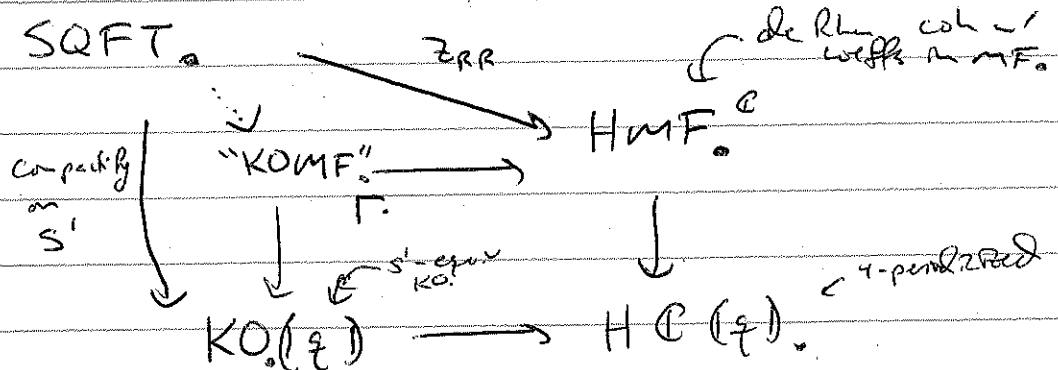 SQFT.
Z_RR
de Rham coh w/
coeffs in MF.
HMF.^ℂ
"KOMF."
Γ.
compactify
on
S'
S'-equiv
KO.
4-periodized
KO.((q))
Hℂ((q)).